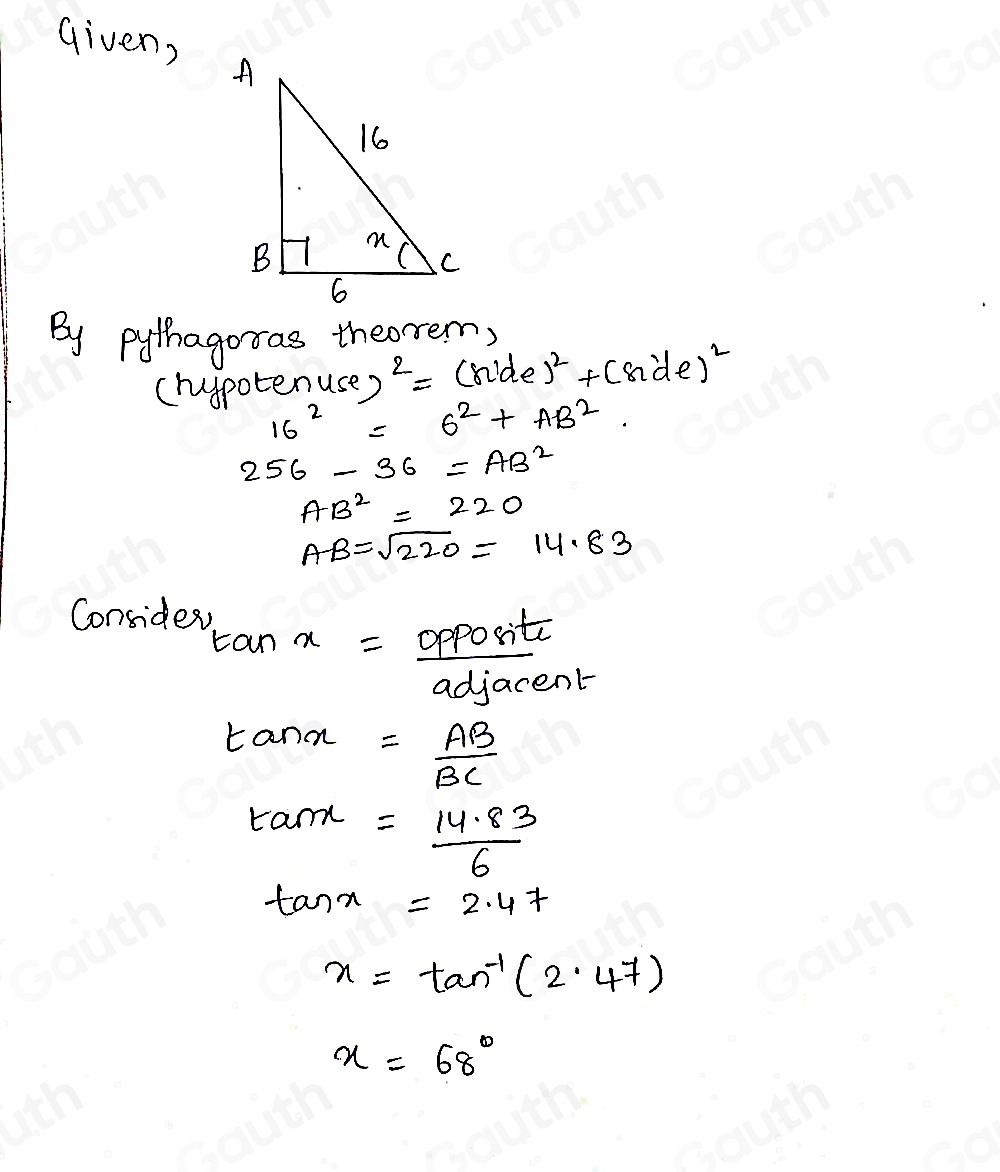 Given,
A
16
B
x
C
6
By pythagoras theorem,
(hypotenuse)² = (side)² + (side)²
16² = 6² + AB².
256 - 36 = AB²
AB² = 220
AB = √220 = 14.83
Consider,
tan x = opposite / adjacent
tan x = AB / BC
tan x = 14.83 / 6
tan x = 2.47
x = tan⁻¹(2.47)
x = 68°
Gauth